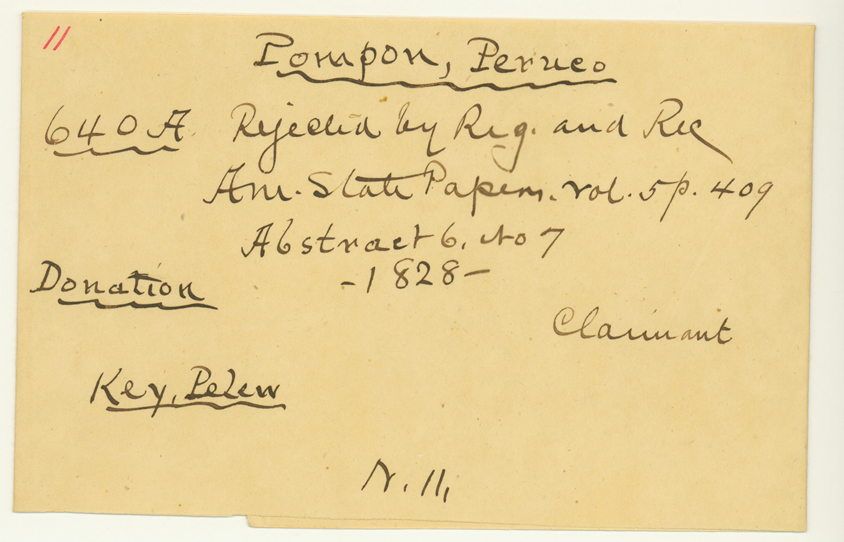 11
Pompon, Peruco
640 A Rejected by Reg. and Rec
Am. State Papers. vol. 5 p. 409
Abstract 6. No 7
-1828-
Donation
Claimant
Key, Pelew
N. 11,